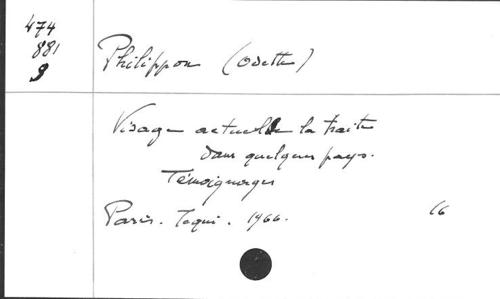 474
881
9
Philippon (Odette)
Visage actuel de la traite
dans quelques pays.
Témoignages
Paris. Tequi. 1966.
66